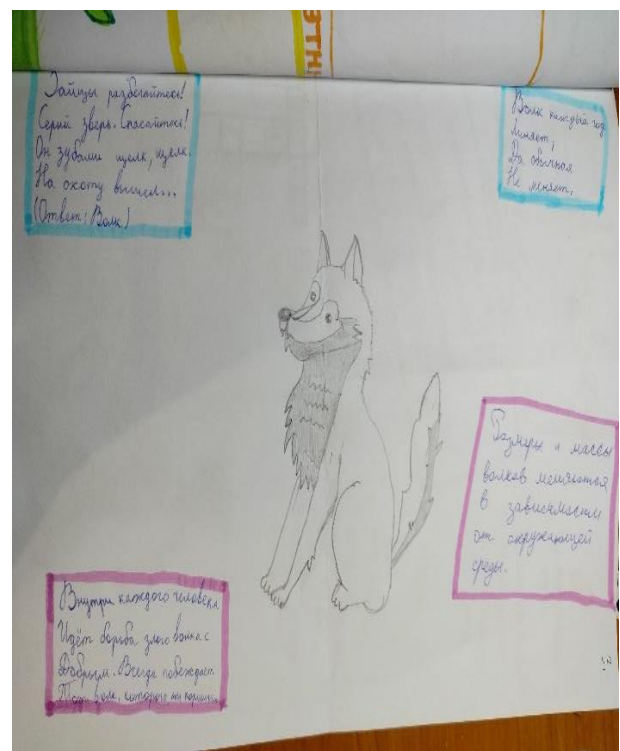 ЭТН
Зайцы разбегайтесь!
Серый зверь. Спасайтесь!
Он зубами щелк, щелк.
На охоту вышел...
(Ответ: Волк)
Волк каждый год
Линяет,
Да обычая
Не меняет.
Размеры и массы
волков меняются
в зависимости
от окружающей
среды.
Внутри каждого человека
Идёт борьба злого волка с
Добрым. Всегда побеждает
Тот волк, которого ты кормишь.